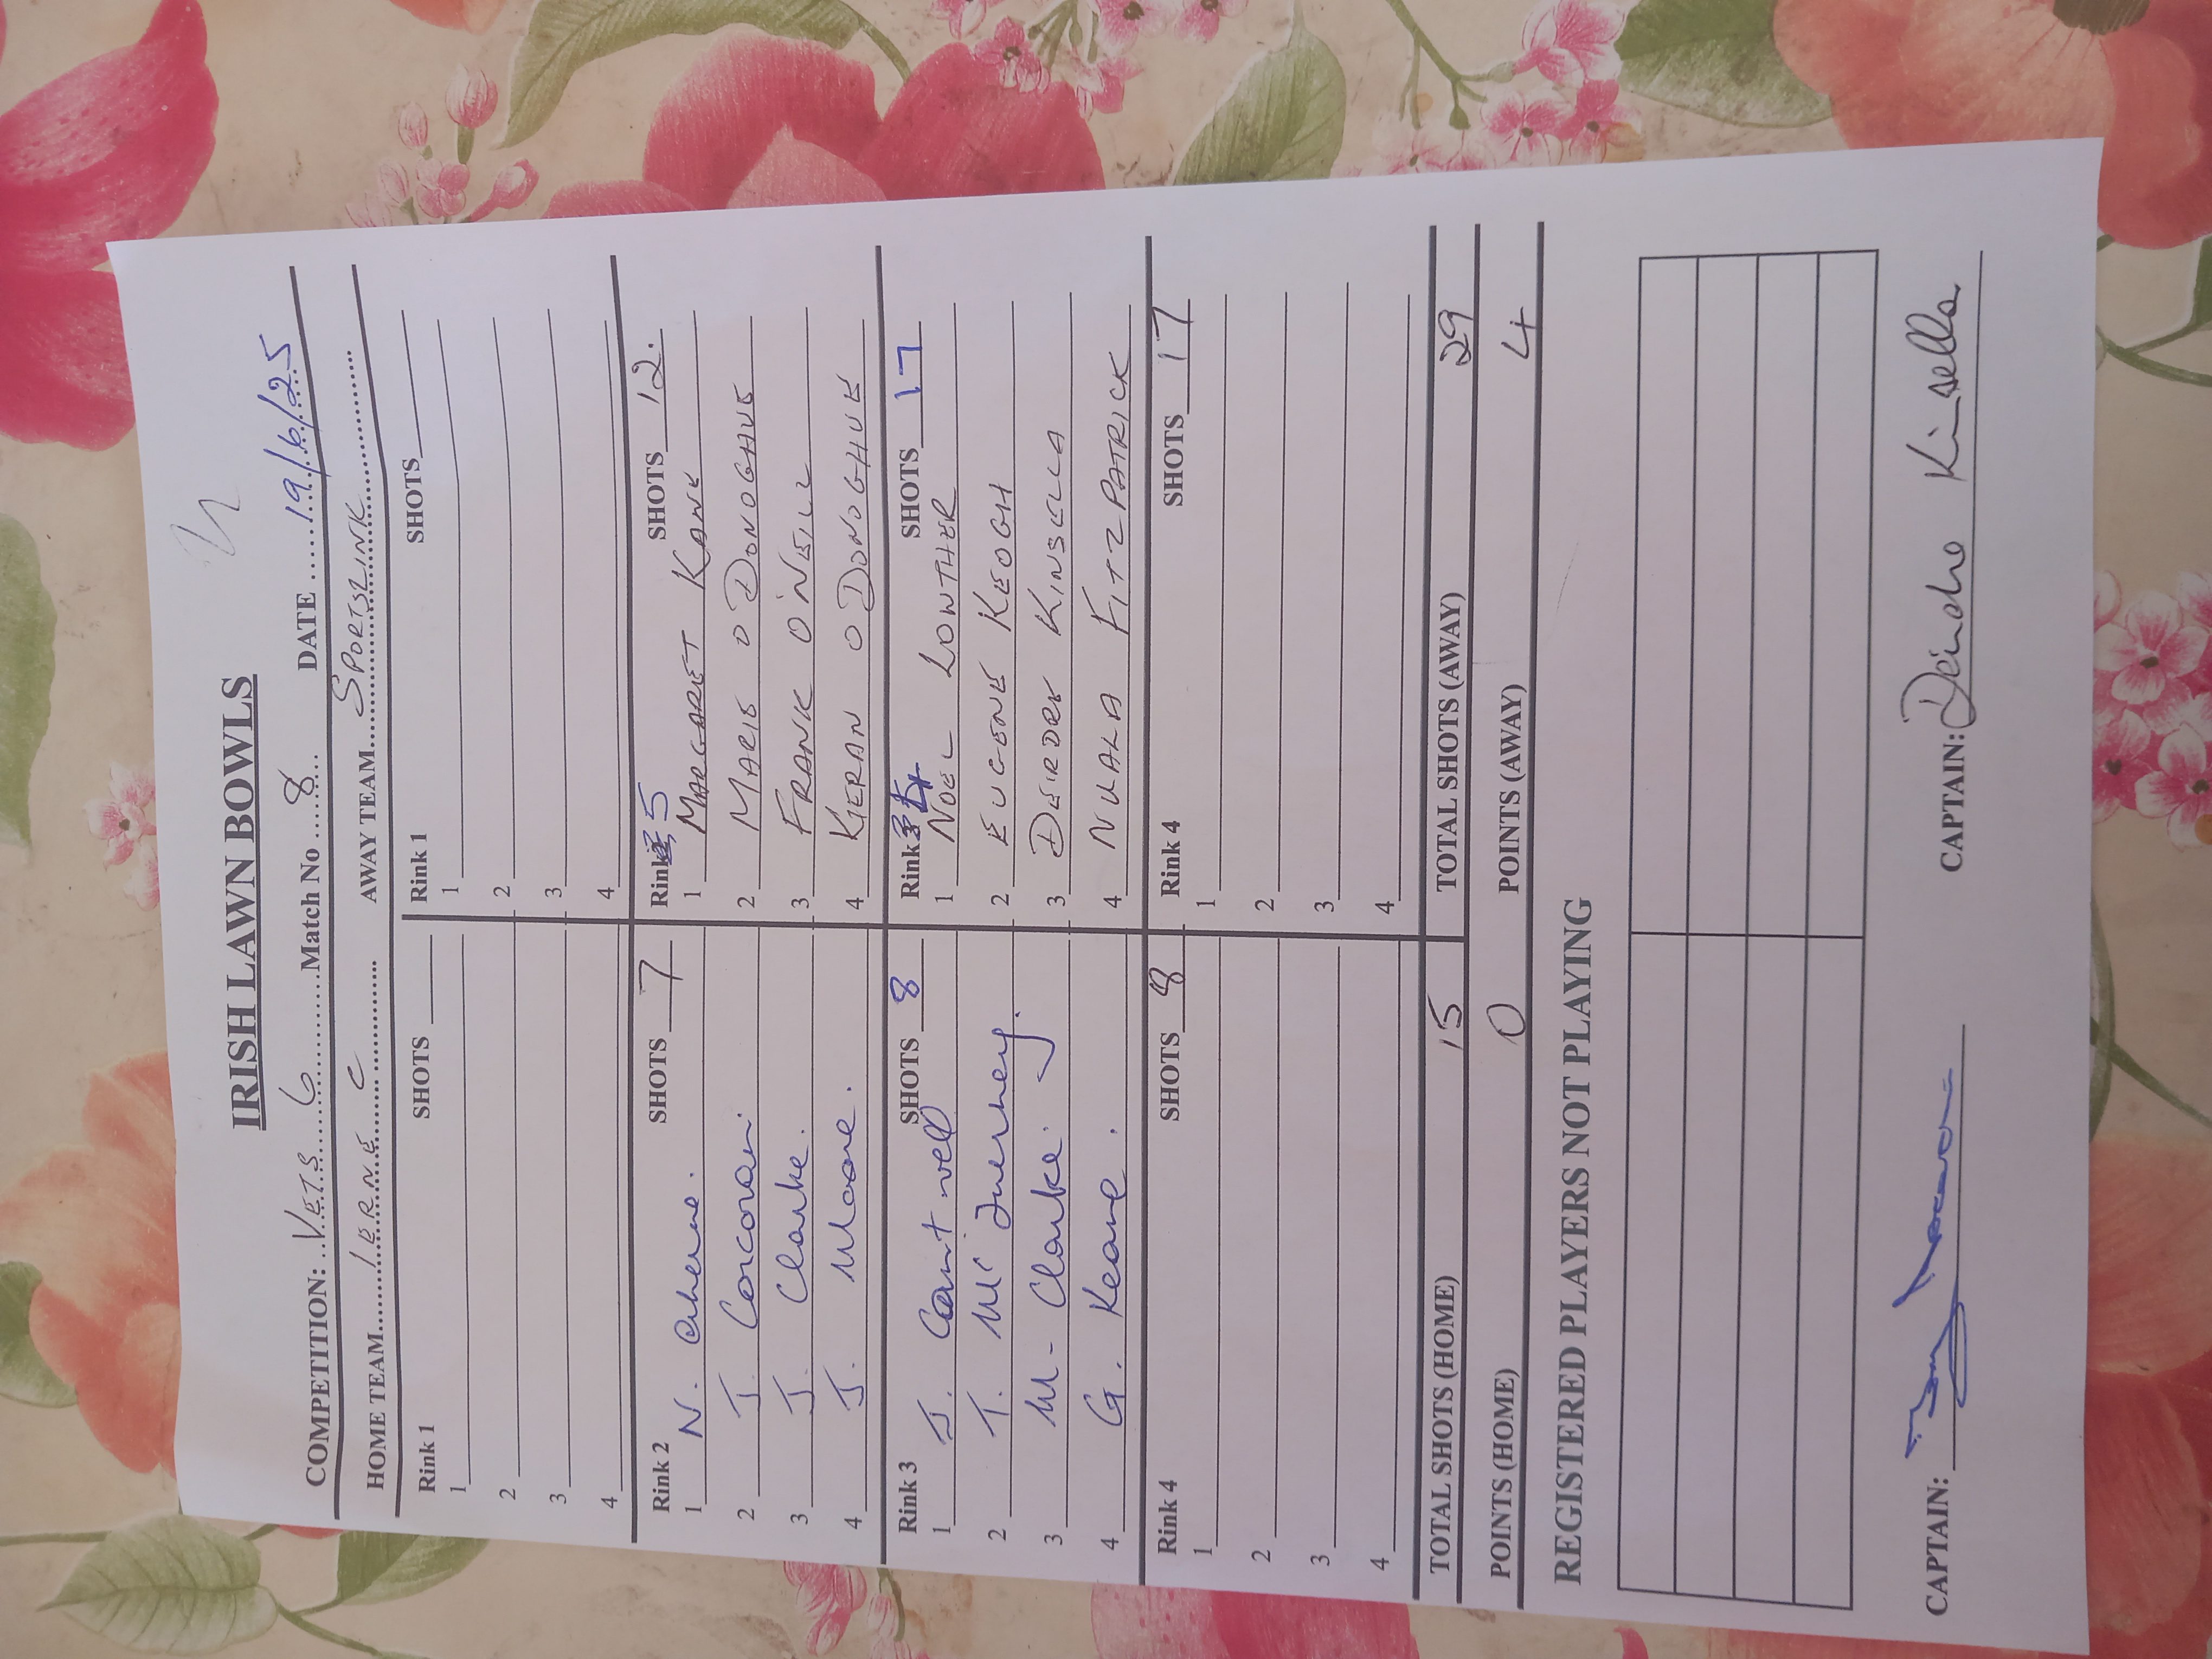 IRISH LAWN BOWLS
COMPETITION: VETS 6 Match No 8 DATE 19/6/25
HOME TEAM IERNE C AWAY TEAM SPORTSLINK
Rink 1 SHOTS Rink 1 SHOTS
1 1
2 2
3 3
4 4
Rink 2 SHOTS 7 Rink 5 SHOTS 12.
1 N. 1 MARGARET KANE
2 J. Corcoran 2 MARIE O DONOGHUE
3 J. Clarke. 3 FRANK O'NEILL
4 J. Moore. 4 KIERAN O DONOGHUE
Rink 3 SHOTS 8 Rink SHOTS 17
1 J. Cantwell 1 NOEL LOWTHER
2 T. McInerney. 2 EUGENE KEOGH
3 M- Clarke 3 DEIRDRE KINSELLA
4 G. Keane. 4 NUALA FITZPATRICK
Rink 4 SHOTS 8 Rink 4 SHOTS 17
1 1
2 2
3 3
4 4
TOTAL SHOTS (HOME) 15 TOTAL SHOTS (AWAY) 29
POINTS (HOME) 0 POINTS (AWAY) 4
REGISTERED PLAYERS NOT PLAYING
CAPTAIN: CAPTAIN: Deirdre Kinsella